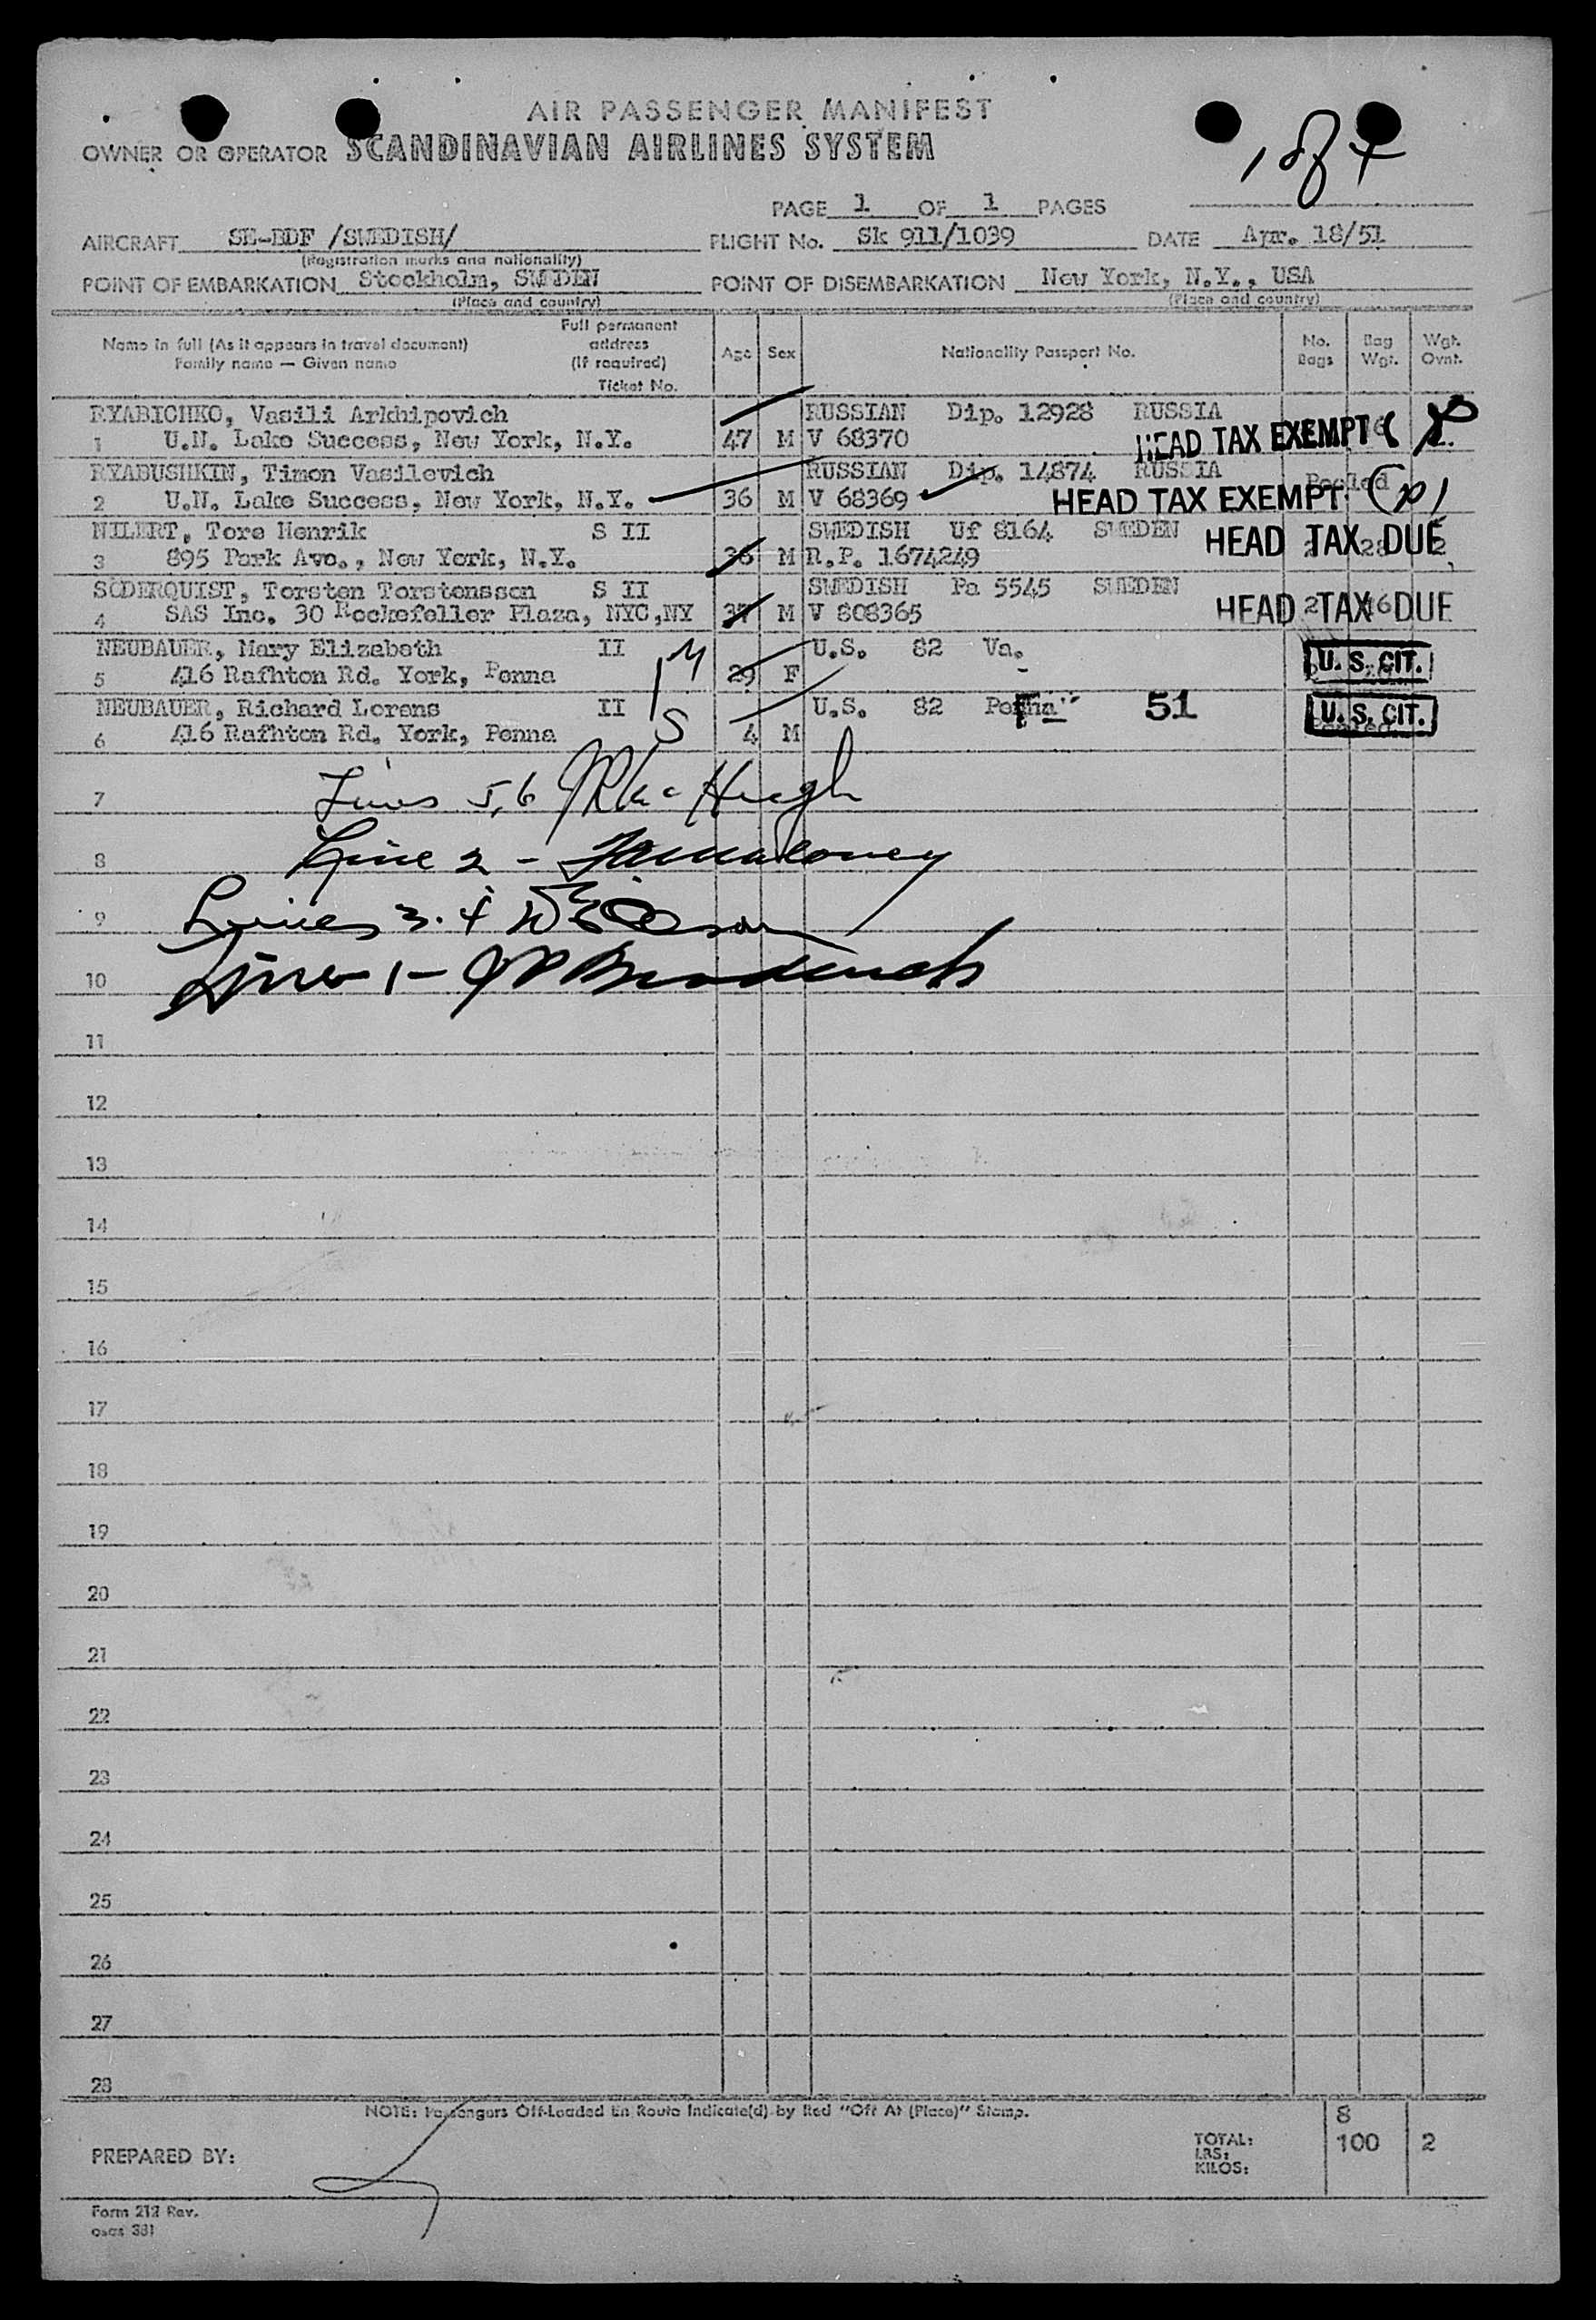 AIR PASSENGER MANIFEST
OWNER OR OPERATOR SCANDINAVIAN AIRLINES SYSTEM
1 of 4
PAGE 1 OF 1 PAGES
AIRCRAFT SE-BDF /SWEDISH/ FLIGHT No. Sk 911/1039 DATE Apr. 18/51
(Registration marks and nationality)
POINT OF EMBARKATION Stockholm, SWEDEN POINT OF DISEMBARKATION New York, N.Y., USA
(Place and country) (Place and country)
Name in full (As it appears in travel document) Family name — Given name Full permanent address (If required) Ticket No. Age Sex Nationality Passport No. No. Bags Bag Wgt. Wgt. Ovnt.
RYABICHKO, Vasili Arkhipovich RUSSIAN Dip. 12928 RUSSIA
1 U.N. Lake Success, New York, N.Y. 47 M V 68370 HEAD TAX EXEMPT
RYABUSHKIN, Timon Vasilevich RUSSIAN Dip. 14874 RUSSIA Pooled
2 U.N. Lake Success, New York, N.Y. 36 M V 68369 HEAD TAX EXEMPT
NILERT, Tore Henrik S II SWEDISH Uf 8164 SWEDEN HEAD TAX DUE
3 895 Park Ave., New York, N.Y. 36 M R.P. 1674249
SODERQUIST, Torsten Torstensson S II SWEDISH Pa 5545 SWEDEN
4 SAS Inc. 30 Rockefeller Plaza, NYC,NY 37 M V 808365 HEAD TAX DUE 2 16
NEUBAUER, Mary Elizabeth II M U.S. 82 Va. U. S. CIT.
5 416 Rafhton Rd. York, Penna 29 F -
NEUBAUER, Richard Lorens II S U.S. 82 Penna 51 U. S. CIT.
6 416 Rafhton Rd. York, Penna 4 M Pooled
7 Lines 5,6 McHugh
8 Line 2 - Maloney
9 Lines 3.4
10 Line 1 -
11
12
13
14
15
16
17
18
19
20
21
22
23
24
25
26
27
28
NOTE: Passengers Off-Loaded En Route Indicate(d) by Red "Off At (Place)" Stamp.
8
PREPARED BY: TOTAL: LBS: KILOS: 100 2
Form 212 Rev.
osas 381